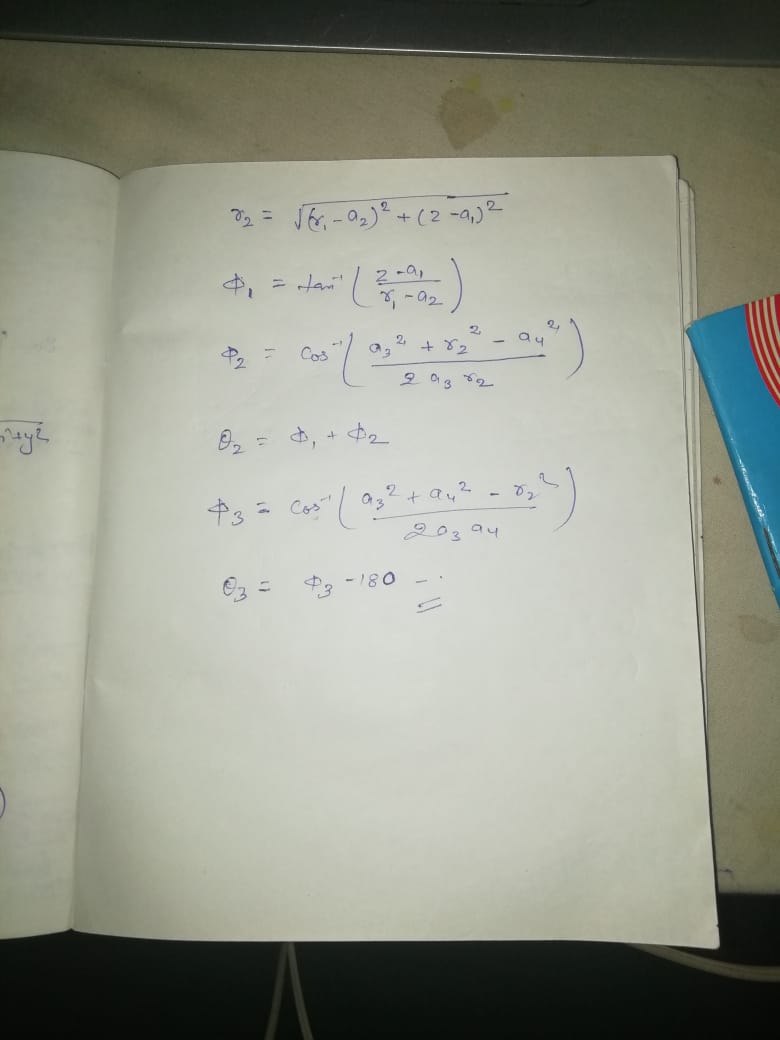 r₂ = √(r₁ - a₂)² + (z - a₁)²
ϕ₁ = tan⁻¹ ( (z - a₁) / (r₁ - a₂) )
ϕ₂ = Cos⁻¹ ( (a₃² + r₂² - a₄²) / (2 a₃ r₂) )
θ₂ = ϕ₁ + ϕ₂
ϕ₃ = Cos⁻¹ ( (a₃² + a₄² - r₂²) / (2 a₃ a₄) )
θ₃ = ϕ₃ - 180